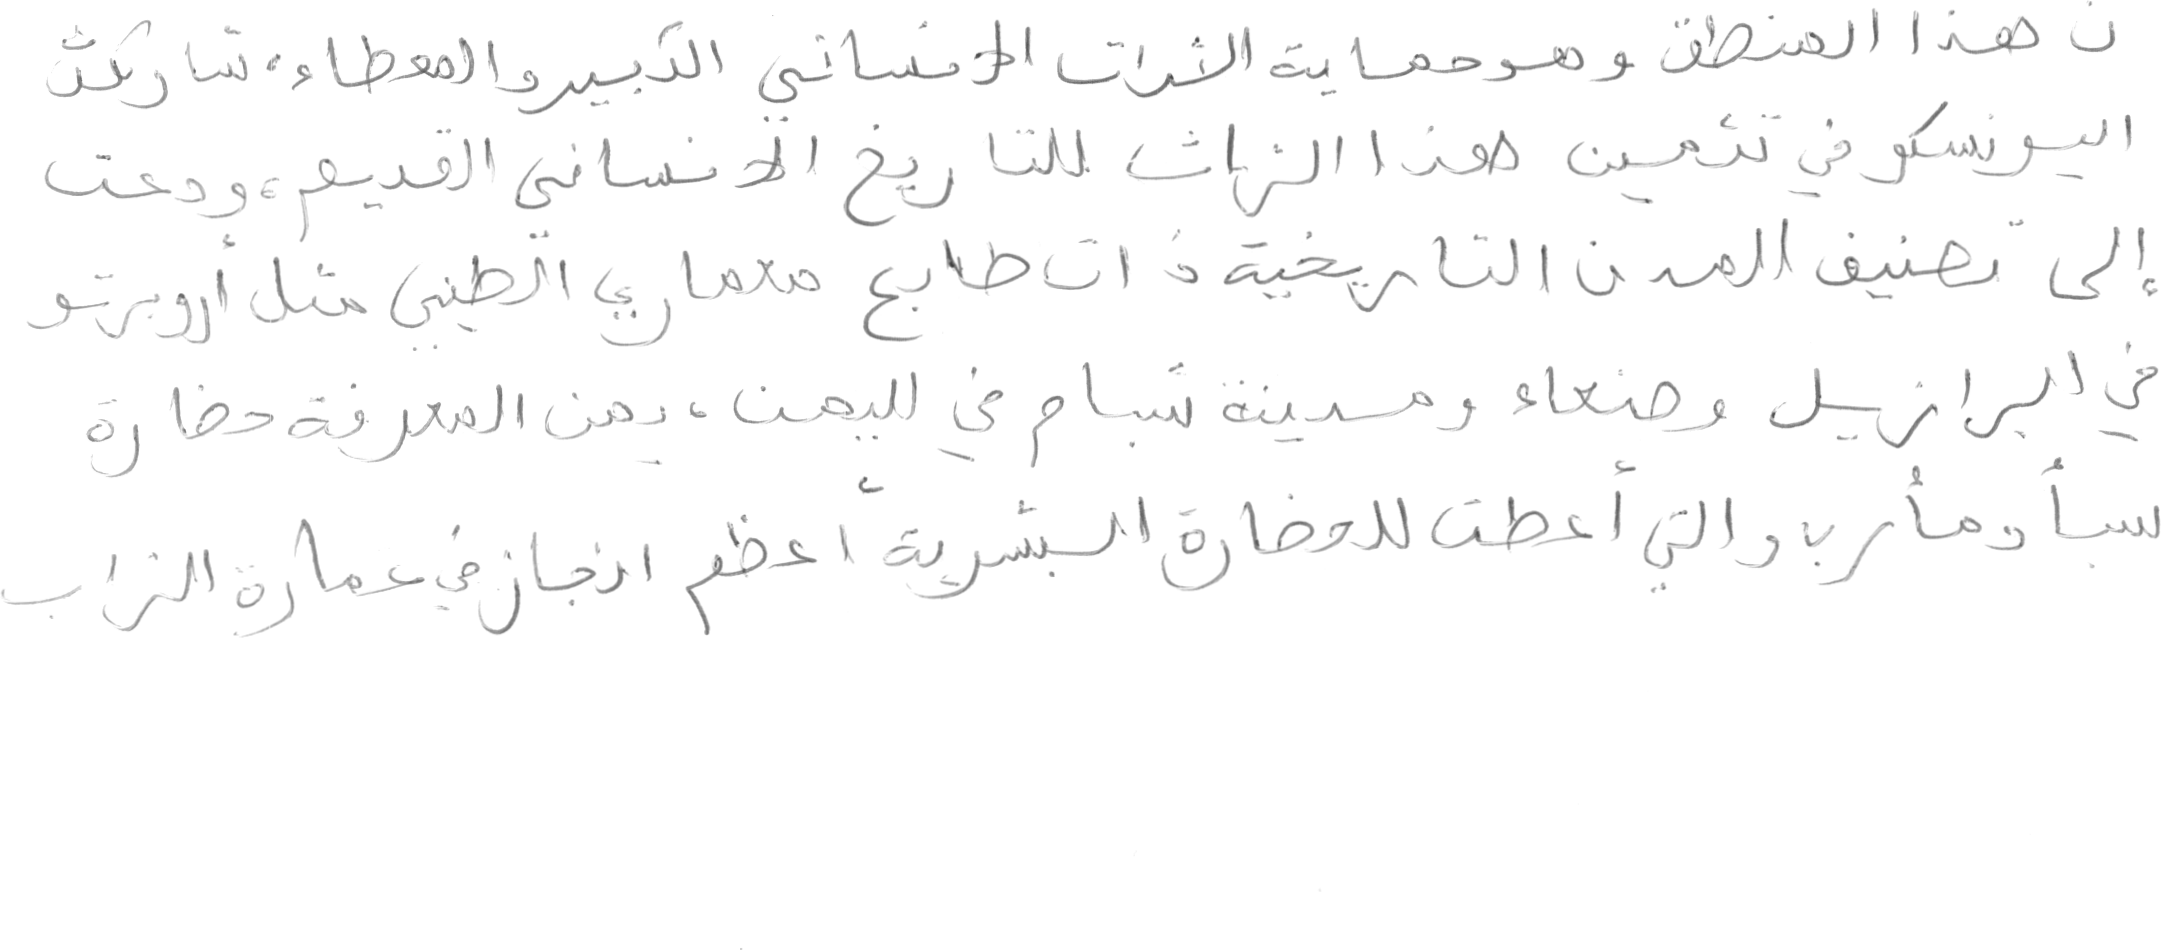 ن هذا المنطق وهو حماية التراث الانساني الكبير والمعطاء، شاركت
اليونسكو في تثمين هذا التراث للتاريخ الانساني القديم، ودعت
إلى تصنيف المدن التاريخية ذات طابع معماري الطيني مثل أروبرتو
في البرازيل وصنعاء ومدينة شبام في لليمن، يمن المعرفة حضارة
سبأ ومأرب والتي أعطت للحضارة البشرية أعظم انجاز في عمارة التراب